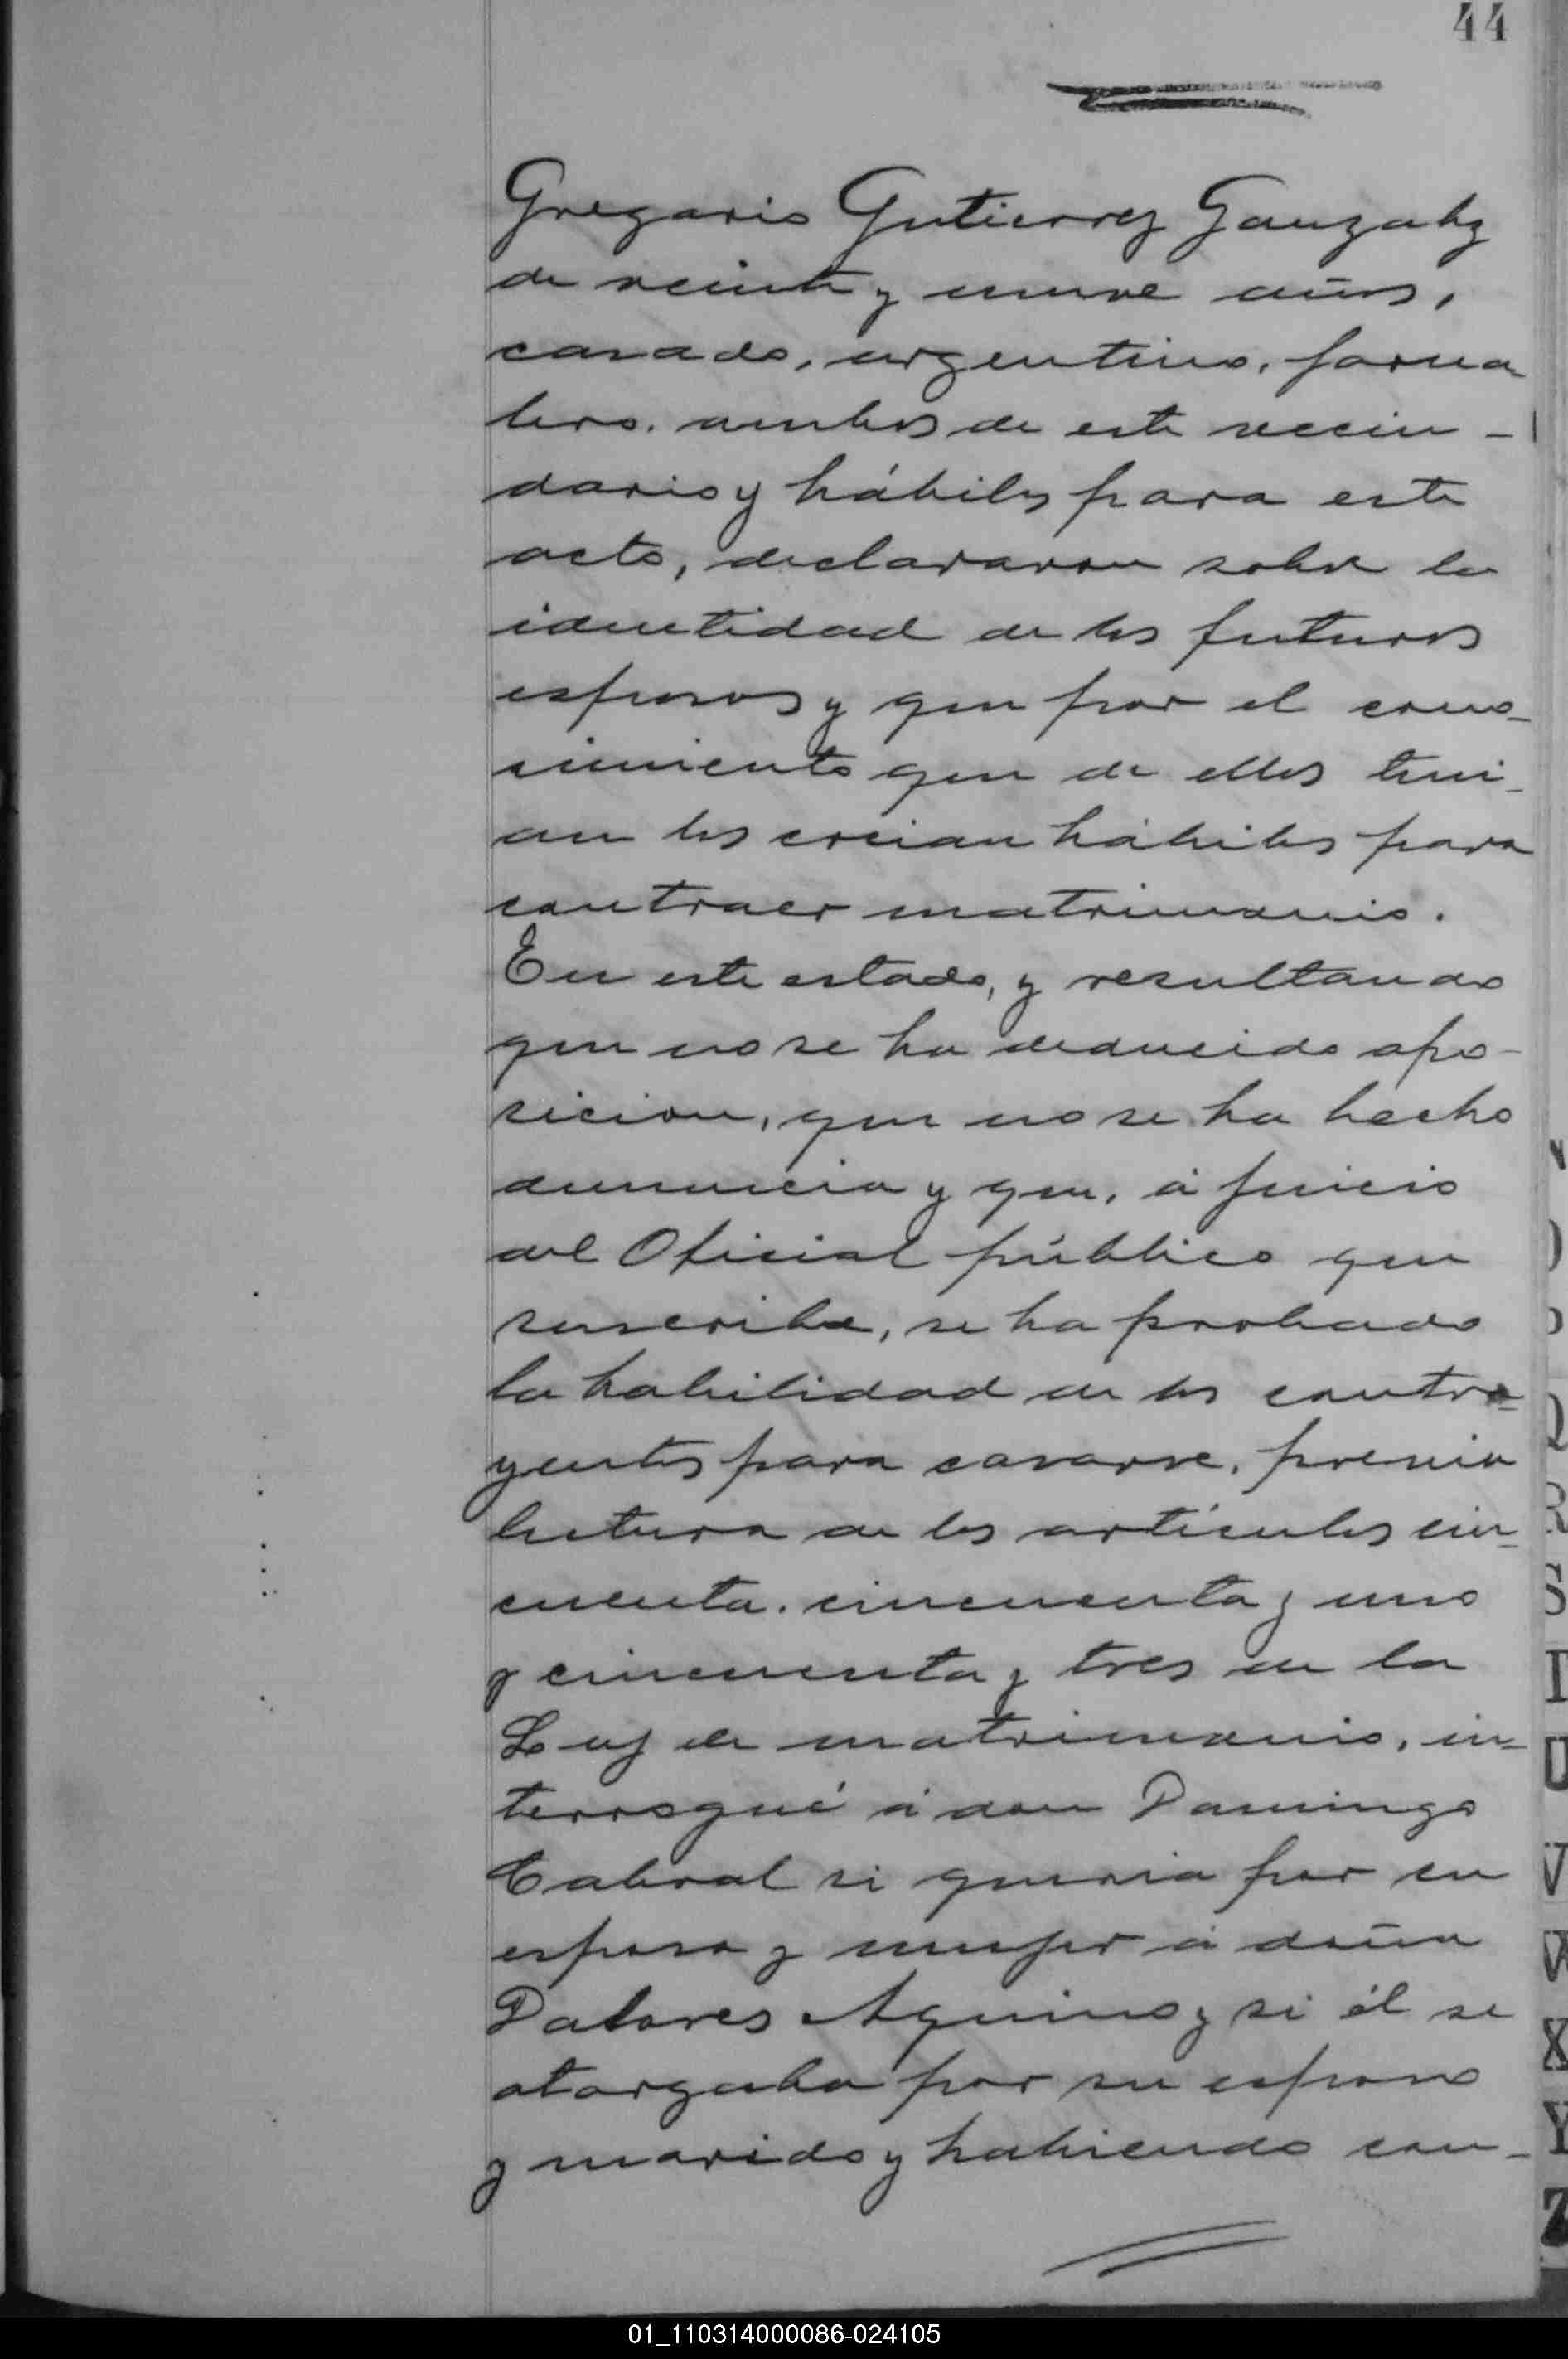 44
Gregorio Gutierrez Gonzalez
de veinte y nueve años,
casado, argentino, jorna-
lero. ambos de este vecin-
dario y hábiles para este
acto, declararon sobre la
identidad de los futuros
esposos y que por el cono-
cimiento que de ellos tení-
an los creian hábiles para
contraer matrimonio.
En este estado, y resultando
que no se ha deducido opo-
sicion, que no se ha hecho
denuncia y que, á juicio
del Oficial público que
suscribe, se ha probado
la habilidad de los contra-
yentes para casarse, previa
lectura de los artículos cin-
cuenta. cincuenta y uno
y cincuenta y tres de la
Ley de matrimonio, in-
terrogué á don Domingo
Cabral si queria por su
esposa y mujer á doña
Dolores Aquino y si él se
otorgaba por su esposo
y marido y habiendo con-
N
O
P
Q
R
S
T
U
V
W
X
Y
Z
01_110314000086-024105